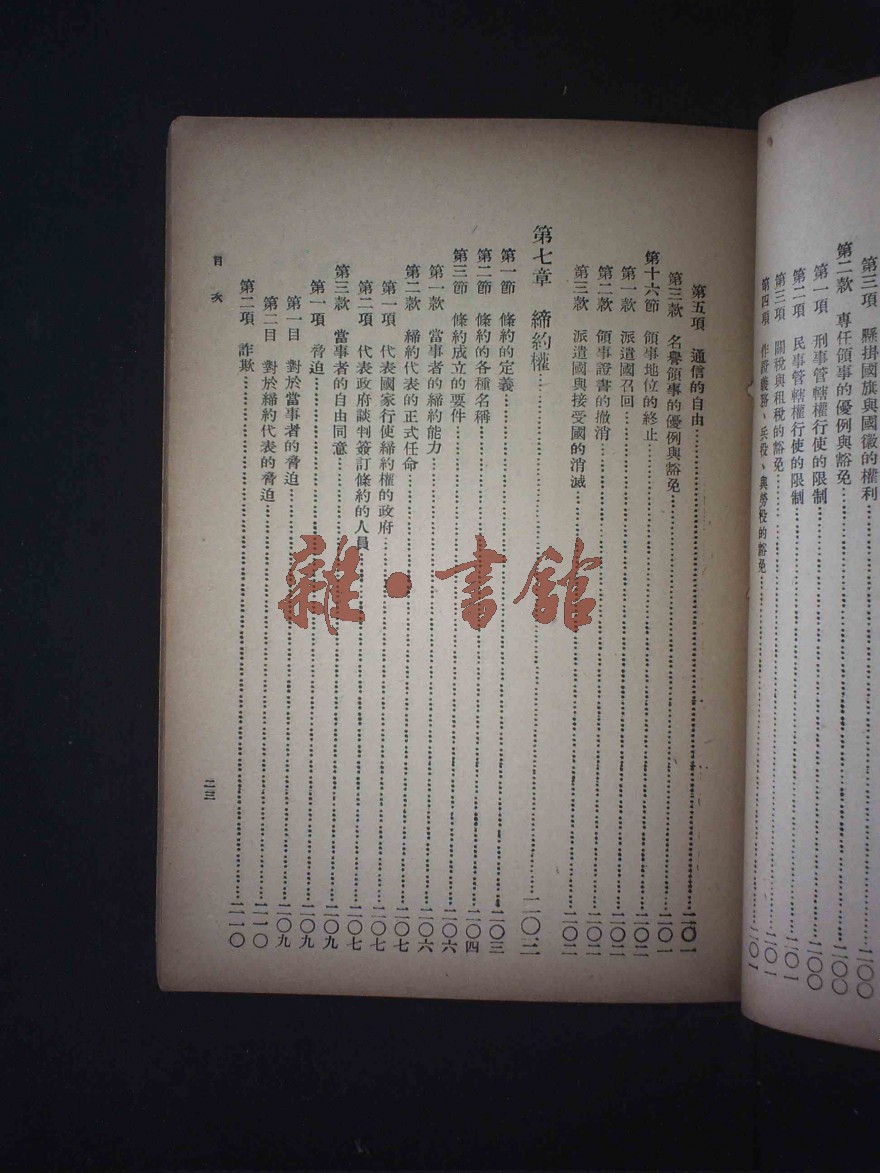 第三項　懸掛國旗與國徽的權利……二〇〇
第二款　專任領事的優例與豁免……二〇〇
第一項　刑事管轄權行使的限制……二〇〇
第二項　民事管轄權行使的限制……二〇一
第三項　關稅與租稅的豁免……二〇一
第四項　作證義務、兵役、與勞役的豁免……二〇一
第五項　通信的自由……二〇一
第三款　名譽領事的優例與豁免……二〇一
第十六節　領事地位的終止……二〇二
第一款　派遣國召回……二〇二
第二款　領事證書的撤消……二〇二
第三款　派遣國與接受國的消滅……二〇二
第七章　締約權……二〇三
第一節　條約的定義……二〇三
第二節　條約的各種名稱……二〇四
第三節　條約成立的要件……二〇六
第一款　當事者的締約能力……二〇六
第二款　締約代表的正式任命……二〇七
第一項　代表國家行使締約權的政府……二〇七
第二項　代表政府談判簽訂條約的人員……二〇七
第三款　當事者的自由同意……二〇九
第一項　脅迫……二〇九
第一目　對於當事者的脅迫……二〇九
第二目　對於締約代表的脅迫……二一〇
第二項　詐欺……二一〇
目次
二三
雜·書館